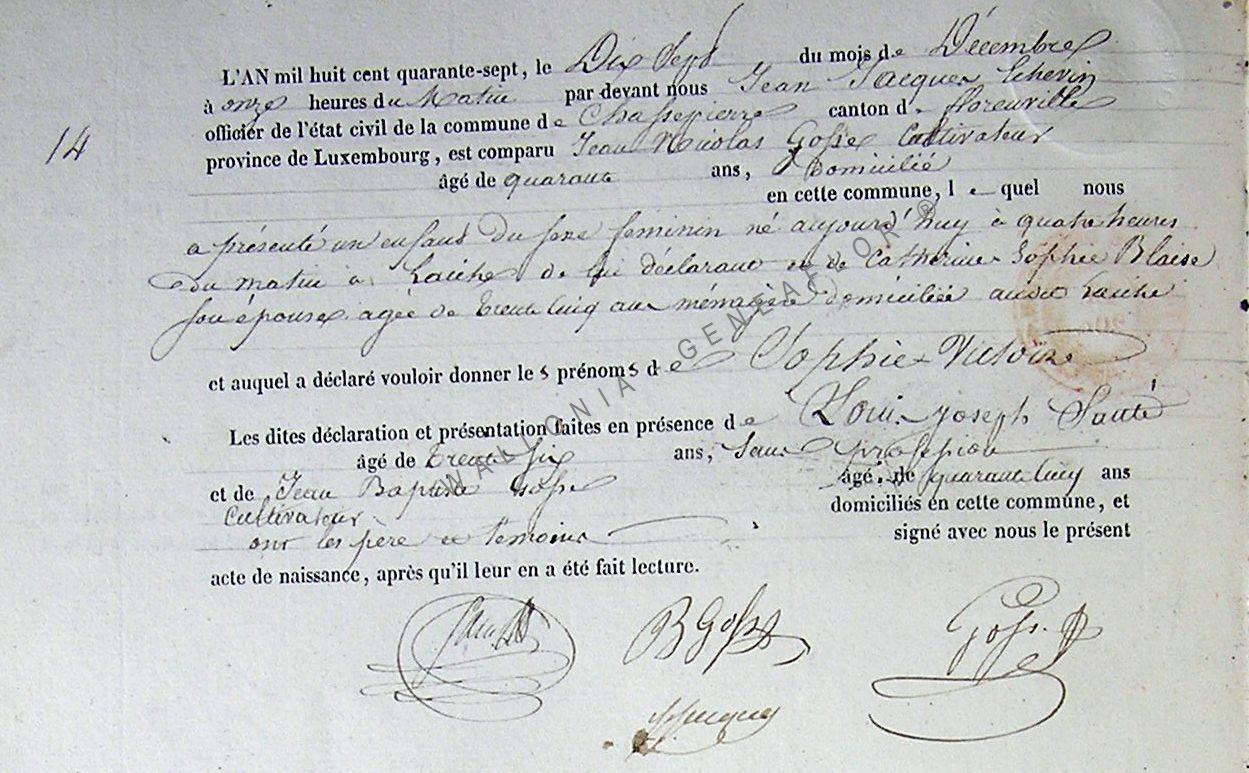 14
L'AN mil huit cent quarante-sept, le Dix Sept du mois de Décembre
à onze heures du Matin par devant nous Jean Jacques
officier de l'état civil de la commune de Chassepierre canton de florenville
province de Luxembourg, est comparu Jean Nicolas Gosse Cultivateur
âgé de quarante ans, Domicilié
en cette commune, le quel nous
a présenté un enfant du sexe feminin né aujourd'huy à quatre heures
du matin à Laiche de lui déclarant et de Catherine Sophie Blaise
son épouse agée de trente cinq ans ménagère domiciliée audit Laiche
et auquel a déclaré vouloir donner les prénoms de Sophie Victoire
Les dites déclaration et présentation faites en présence de Louis Joseph Santé
âgé de trente six ans, sans profession
et de Jean Baptiste Gosse âgé de quarante cinq ans
Cultivateur domiciliés en cette commune, et
ont les père et temoins signé avec nous le présent
acte de naissance, après qu'il leur en a été fait lecture.
B Gosse
Gosse
WALLONIA GENEALOR ®